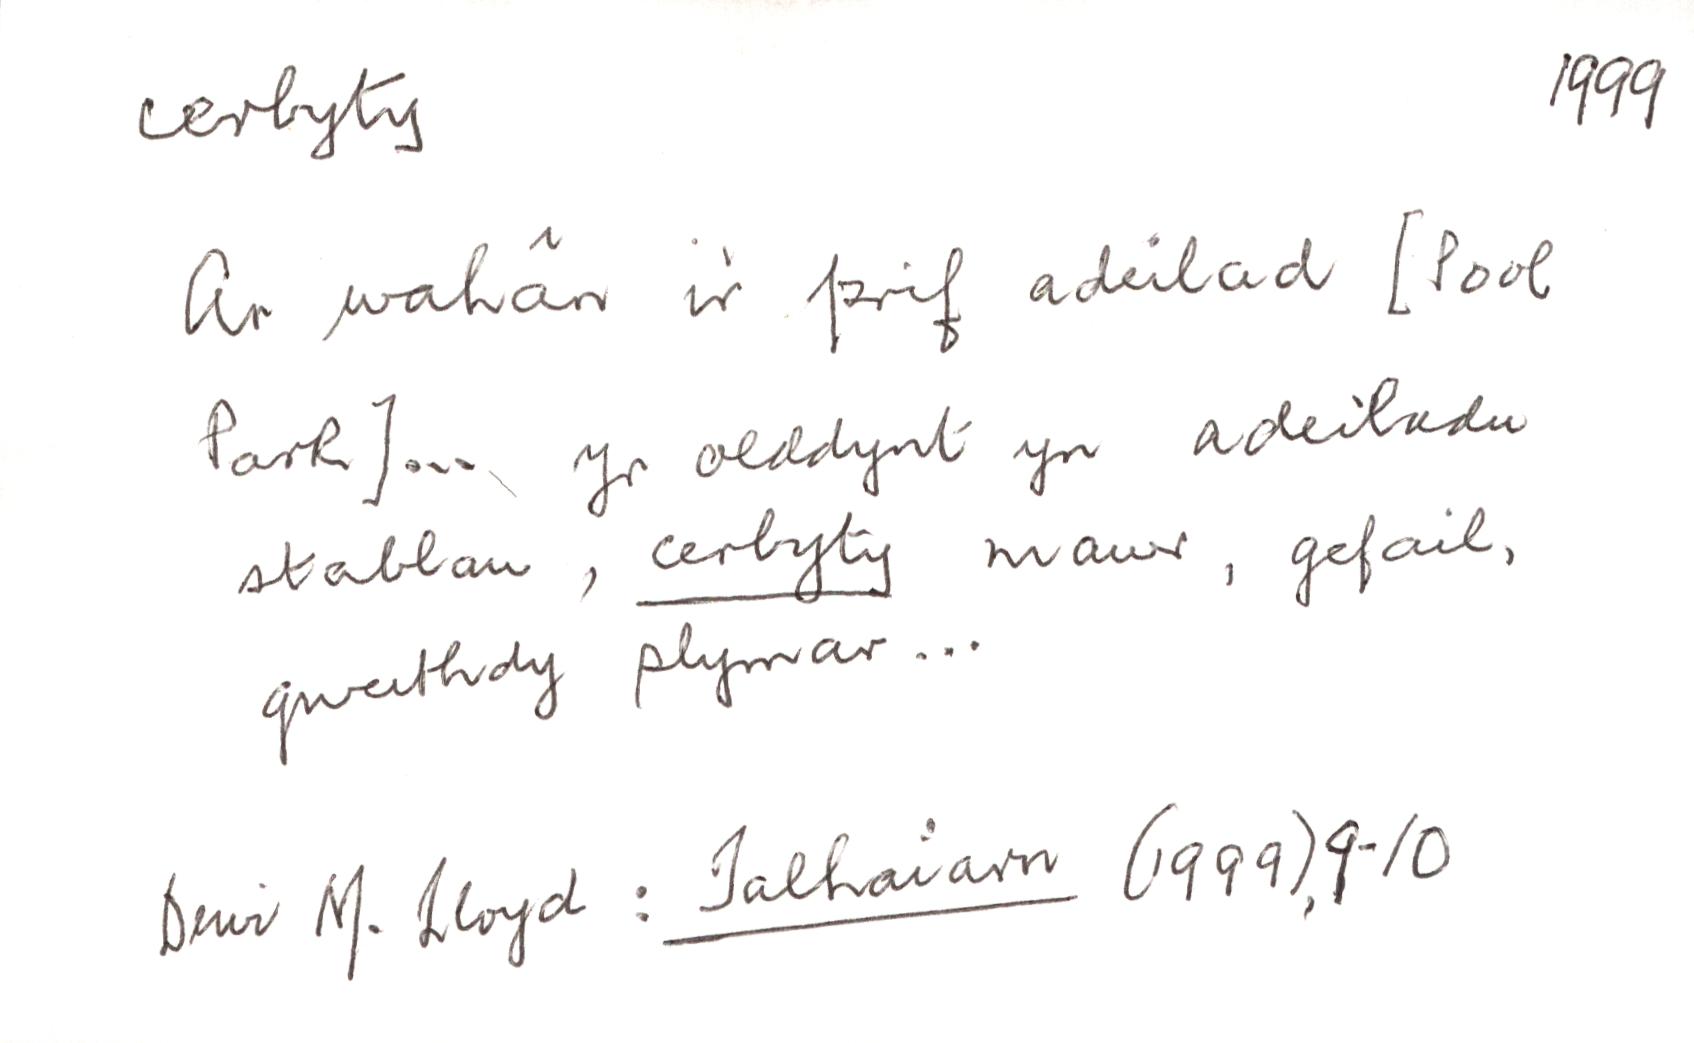 cerbyty 1999
Ar wahân i'r prif adeilad [Pool
Park]... yr oeddynt yn adeiladu
stablau, cerbyty mawr, gefail,
gweithdy plymar...
Dewi M. Lloyd : Talhaiarn (1999), 9-10